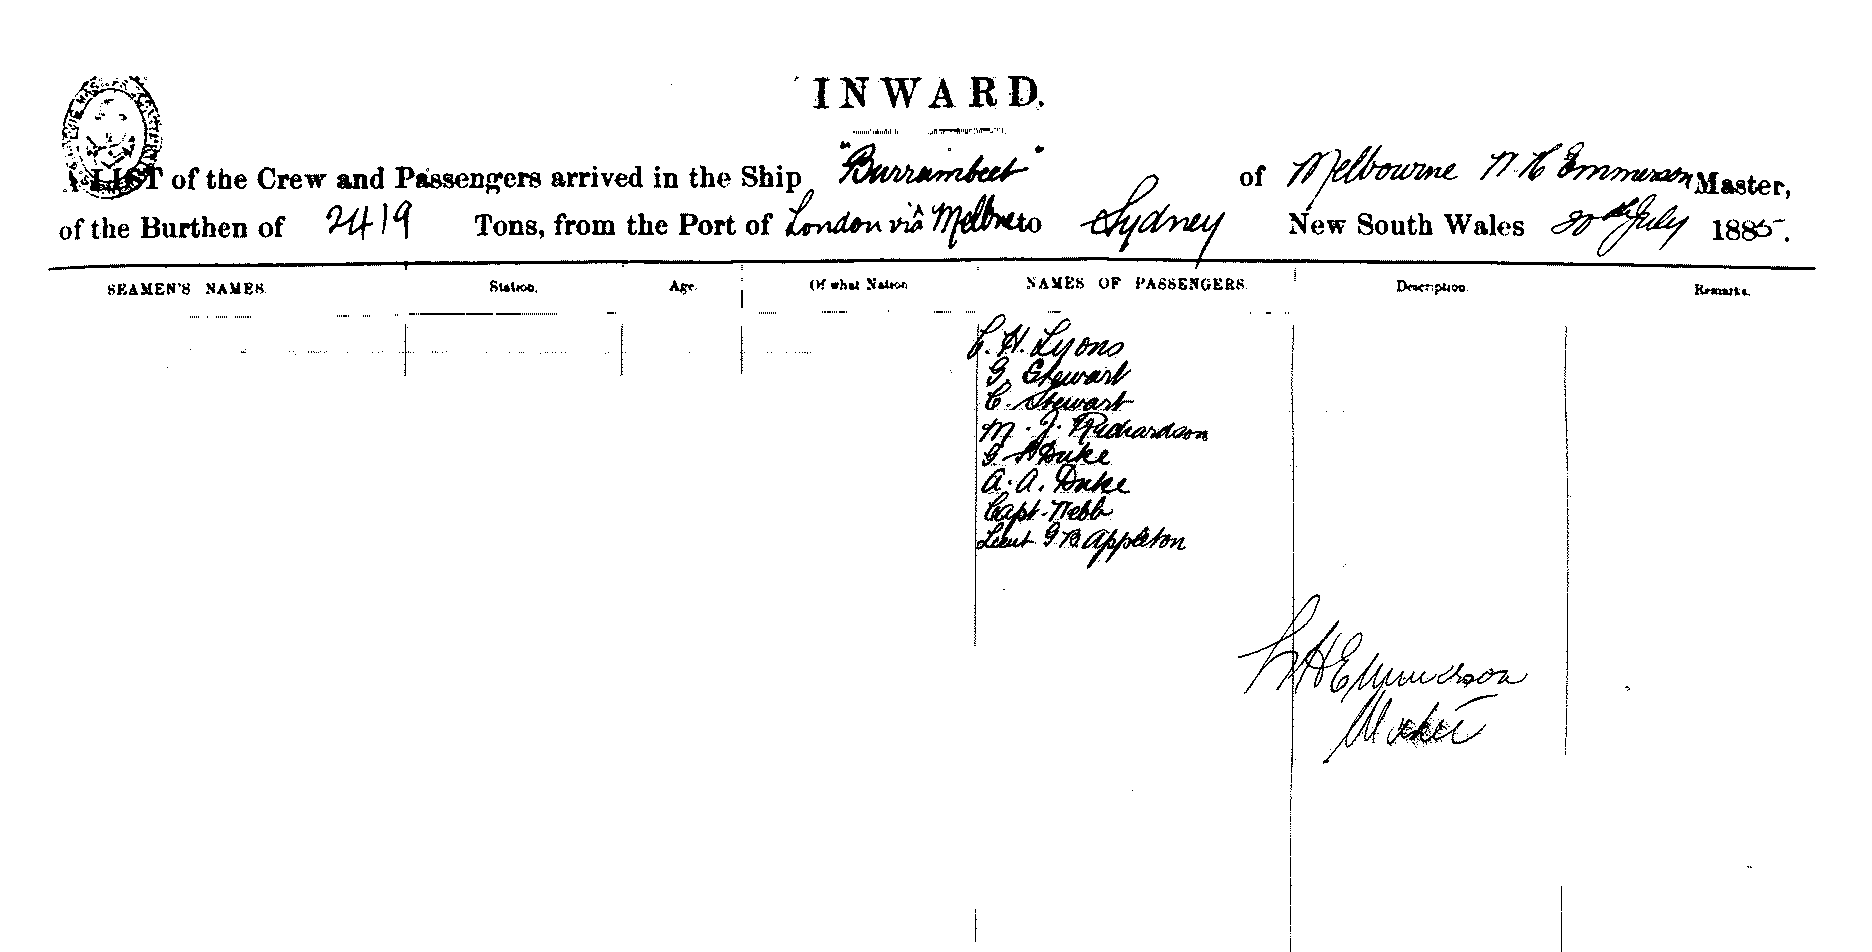 INWARD.
LIST of the Crew and Passengers arrived in the Ship "Burrumbeet" of Melbourne Emmerson Master,
of the Burthen of 2419 Tons, from the Port of London viâ Melbne to Sydney New South Wales 20th July 1885.
SEAMEN'S NAMES Station. Age. Of what Nation NAMES OF PASSENGERS. Description. Remarks.
C. H. Lyons
G. Stewart
C. Stewart
M. J. Richardson
G Duke
A. A. Duke
Capt. Webb
Lieut G B Appleton
H Emmerson
Master